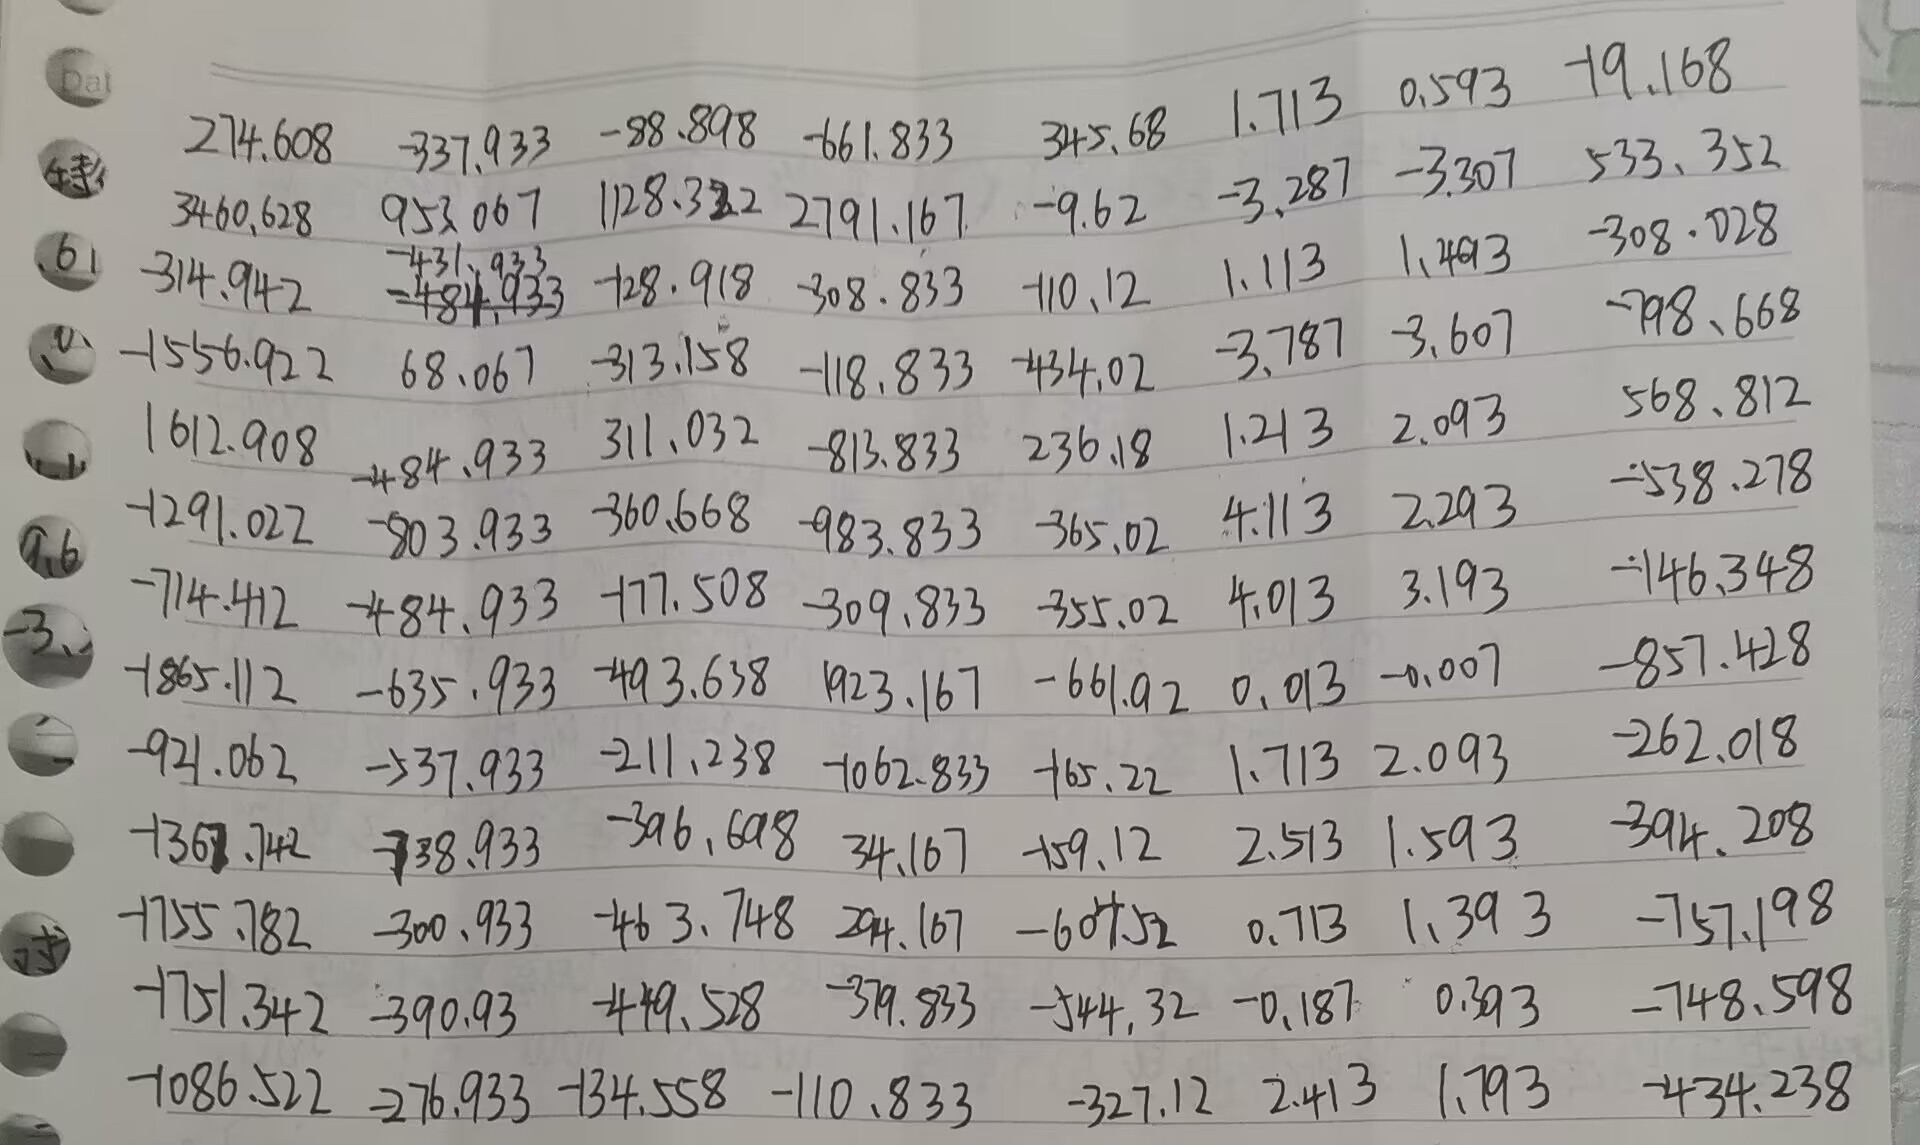 Dat
274.608 -337.933 -88.898 -661.833 345.68 1.713 0.593 -19.168
3460.628 953.067 1128.322 2791.167 -9.62 -3.287 -3.307 533.352
-431.933
-314.942 -484.933 -128.918 -308.833 -110.12 1.113 1.493 -308.028
-1556.922 68.067 -313.158 -118.833 -434.02 -3.787 -3.607 -798.668
1612.908 -484.933 311.032 -813.833 236.18 1.213 2.093 568.812
-1291.022 -803.933 -360.668 -983.833 -365.02 4.113 2.293 -538.278
-714.412 -484.933 -177.508 -309.833 -355.02 4.013 3.193 -146.348
-1865.112 -635.933 -493.638 1923.167 -661.92 0.013 -0.007 -857.428
-921.062 -537.933 -211.238 -1062.833 -165.22 1.713 2.093 -262.018
-1367.742 -738.933 -396.698 34.167 -159.12 2.513 1.593 -394.208
-1755.782 -300.933 -463.748 294.167 -604.52 0.713 1.393 -757.198
-1751.342 -390.93 -449.528 -379.833 -544.32 -0.187 0.393 -748.598
-1086.522 -276.933 -134.558 -110.833 -327.12 2.413 1.793 -434.238